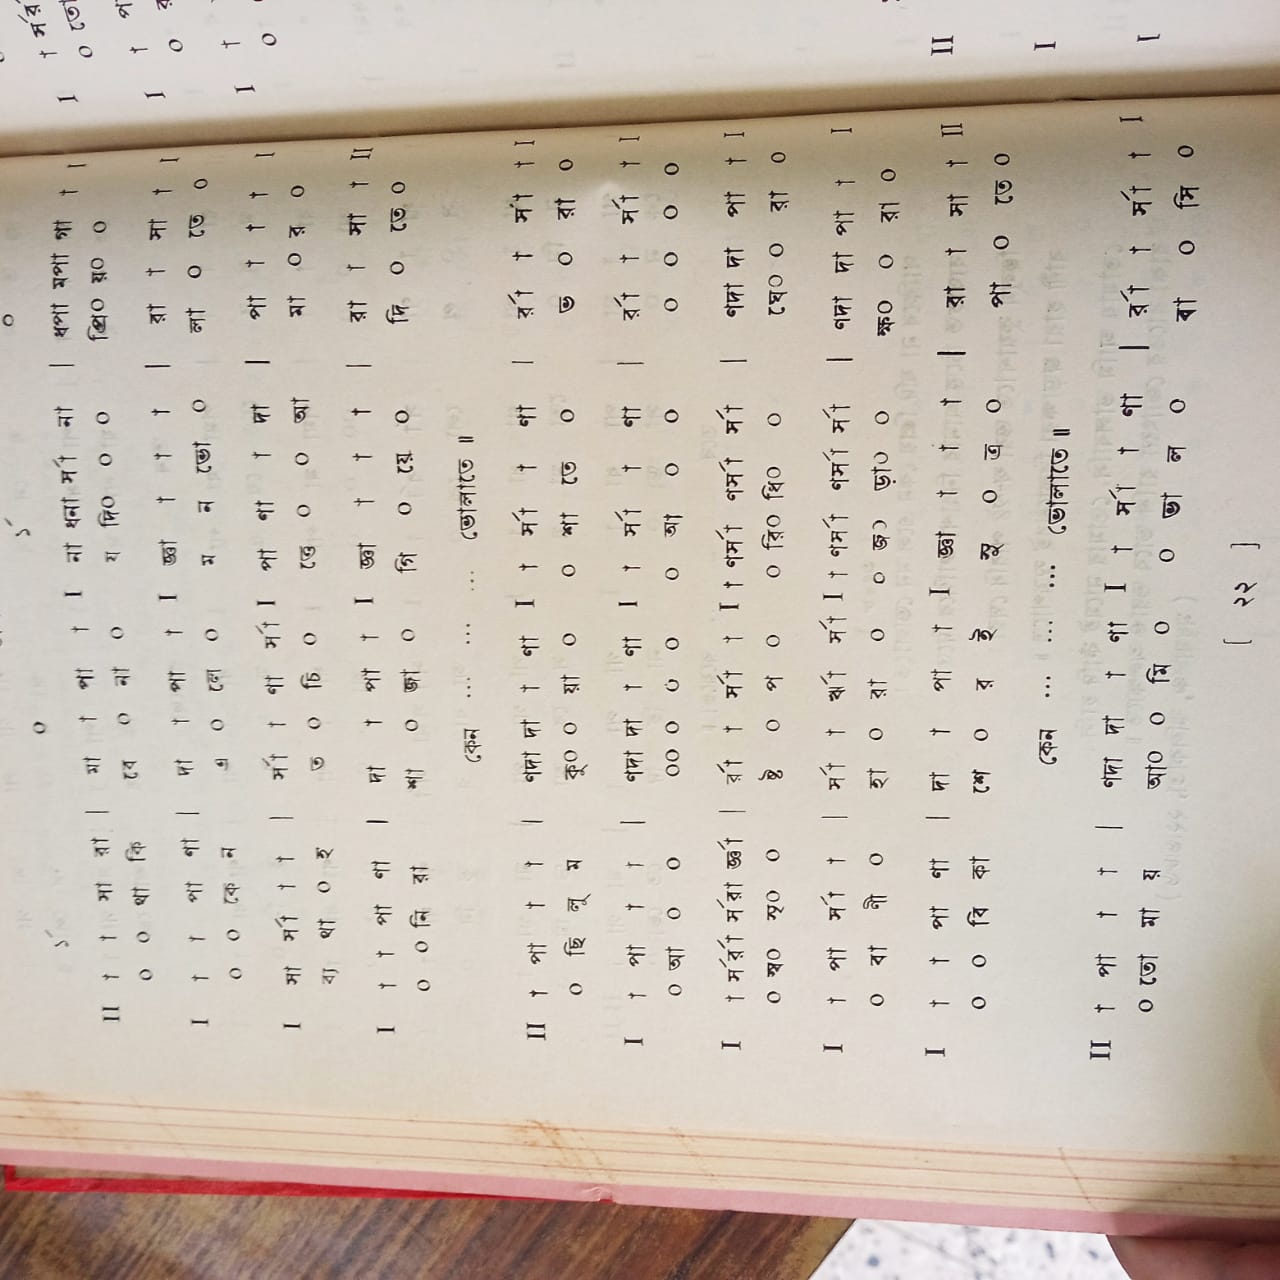 II † † মা রা | মা † পা † I না ধনা র্সা না | ধপা মপা গা † I
০ ০ থা কি বে ০ না ০ য দি০ ০ ০ প্রি০ য়০ ০
I † † পা ণা | দা † পা † I জ্ঞা † † † | রা † সা † I
০ ০ কে ন এ ০ লে ০ ম ন ভো ০ লা ০ তে ০
I মা র্সা † † | র্সা † ণা র্সা I পা ণা † দা | পা † † † I
ব্য থা ০ হ ত ০ চি ০ তে ০ ০ আ মা ০ র ০
I † † পা ণা | দা † পা † I জ্ঞা † † † | রা † সা † II
০ ০ নি রা শা ০ জা ০ গি ০ য়ে ০ দি ০ তে ০
কেন ... ... ... ভোলাতে ॥
II † পা † † | ণদা দা † ণা I † র্সা † ণা | র্রা † র্সা † I
০ ছি লূ ম কূ০ ০ য়া ০ ০ শা তে ০ ভ ০ রা ০
I † পা † † | ণদা দা † ণা I † র্সা † ণা | র্রা † র্সা † I
০ আ ০ ০ ০০ ০ ০ ০ ০ আ ০ ০ ০ ০ ০ ০
I † র্সর্রা র্সর্রা র্জ্ঞা | র্রা † র্সা † I † ণর্সা ণর্সা র্সা | ণদা দা পা † I
০ স্ব০ স্ব০ ০ ষ্ট ০ প ০ ০ রি০ ধি০ ০ ঘে০ ০ রা ০
I † পা র্সা † | র্সা † র্ঋা র্সা I † ণর্সা ণর্সা র্সা | ণদা দা পা † I
০ বা ণী ০ হা ০ রা ০ ০ জ০ ড়া০ ০ ক্ষ০ ০ রা ০
I † † পা ণা | দা † পা † I জ্ঞা † † † | রা † সা † II
০ ০ বি কা শে ০ র ই সু ০ ত্র ০ পা ০ তে ০
কেন ... ... ... ভোলাতে ॥
II † পা † † | ণদা দা † ণা I † র্সা † ণা | র্রা † র্সা † I
০ তো মা য় আ০ ০ মি ০ ০ ভা ল ০ বা ০ সি ০
[ ২২ ]